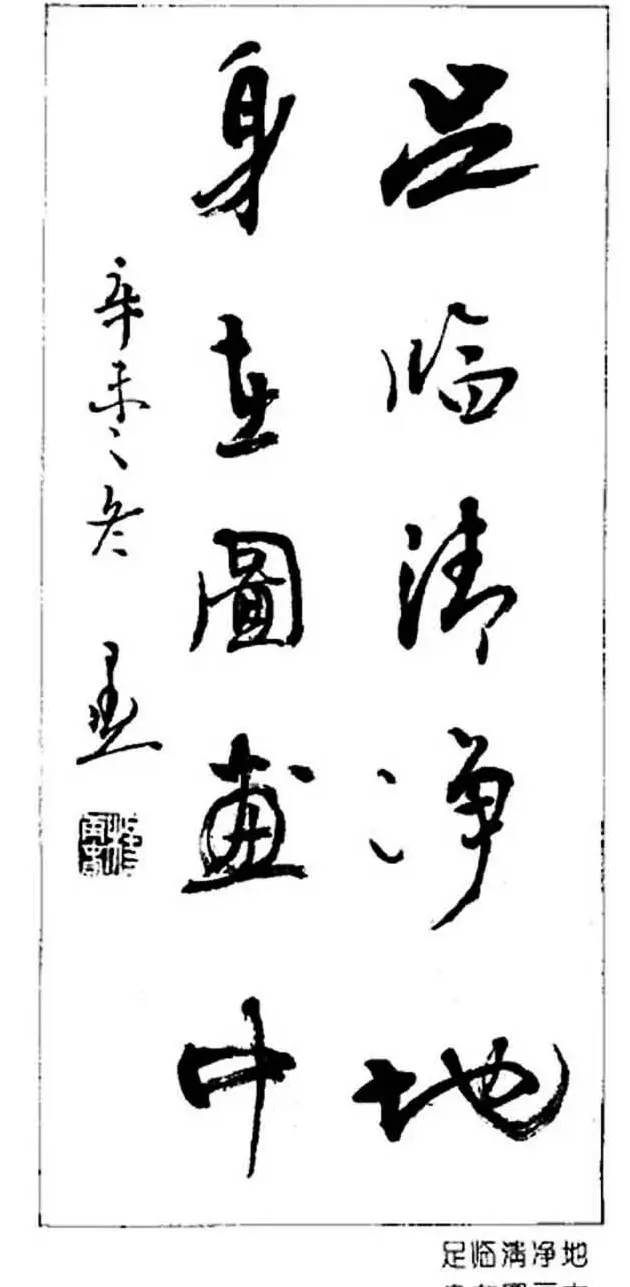 足临清净地
身在圖畫中
辛未之冬
足临清净地